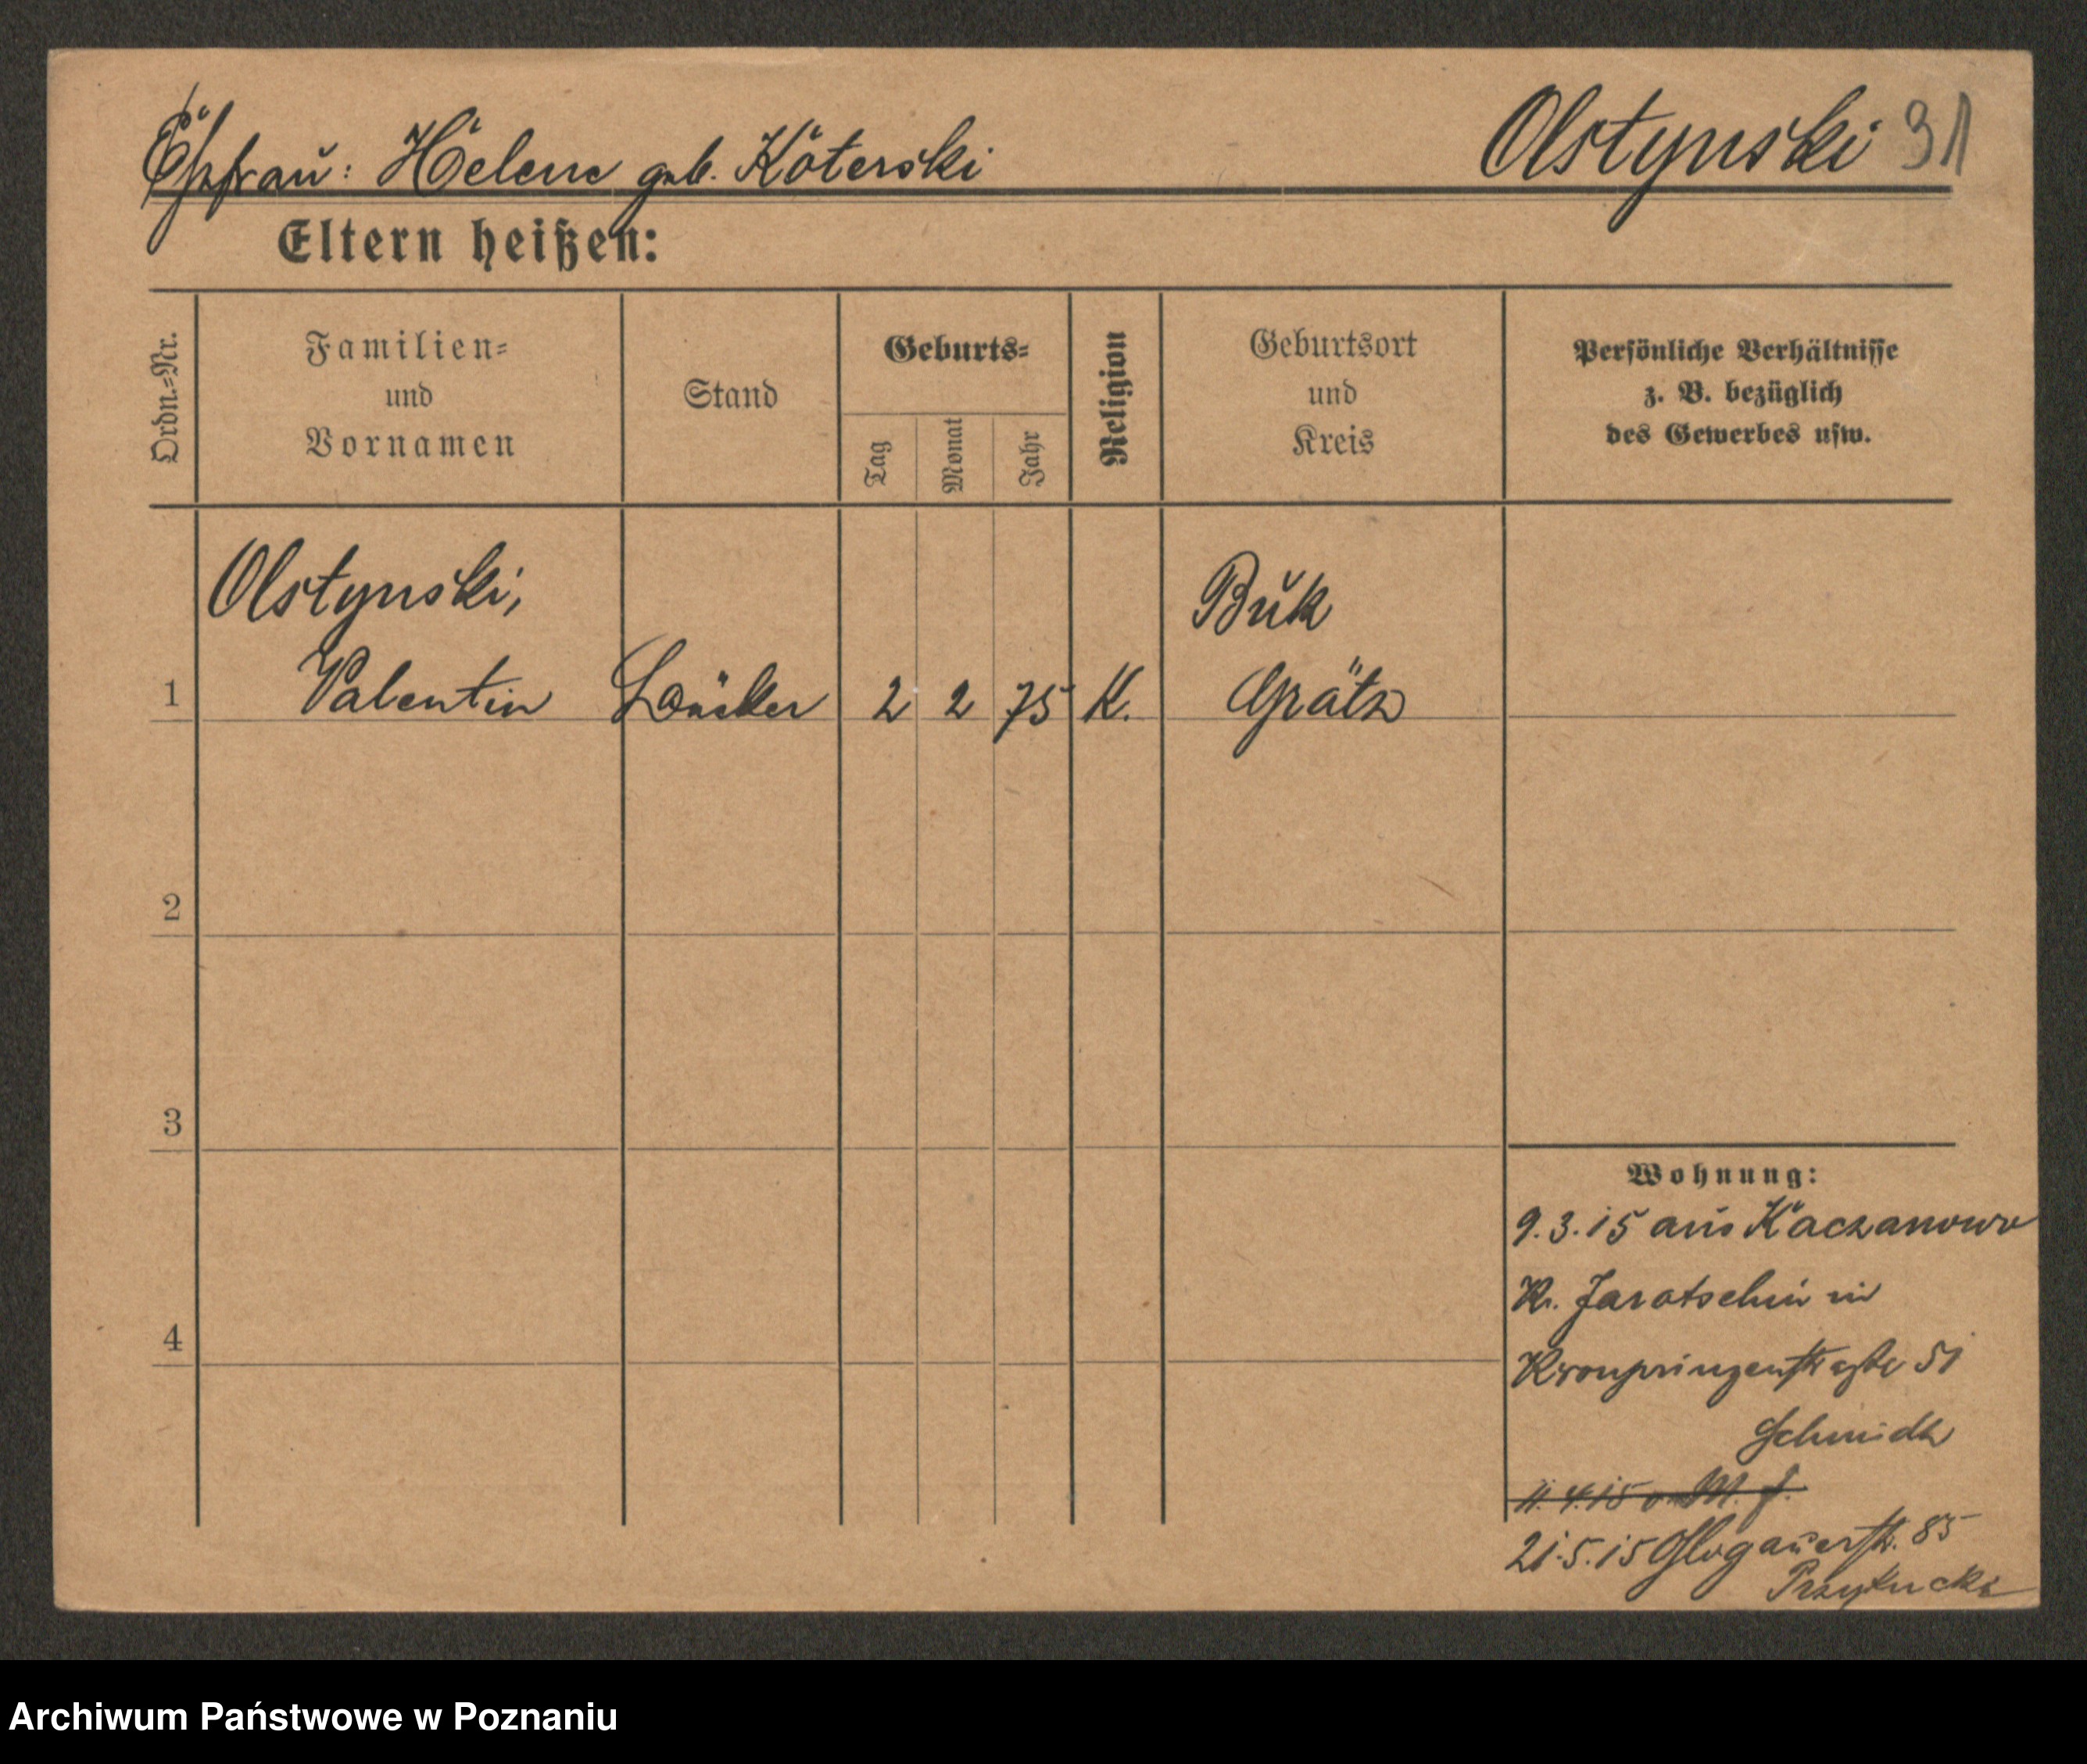 Ehefrau: Helene geb. Koterski Olstynski 31
Eltern heißen:
Ordn.-Nr.
Familien-
und
Vornamen
Stand
Geburts-
Tag
Monat
Jahr
Religion
Geburtsort
und
Kreis
Persönliche Verhältnisse
z. B. bezüglich
des Gewerbes usw.
Olstynski, Buk
1 Valentin 2 2 75 K. Grätz
2
3
4
Wohnung:
9.3.15 aus Kaczanowo
Kr. Jarotschin in
Kronprinzenstraße 51
Schmidt
11.4.15
21.5.15 Glogauerstr. 85
Archiwum Państwowe w Poznaniu